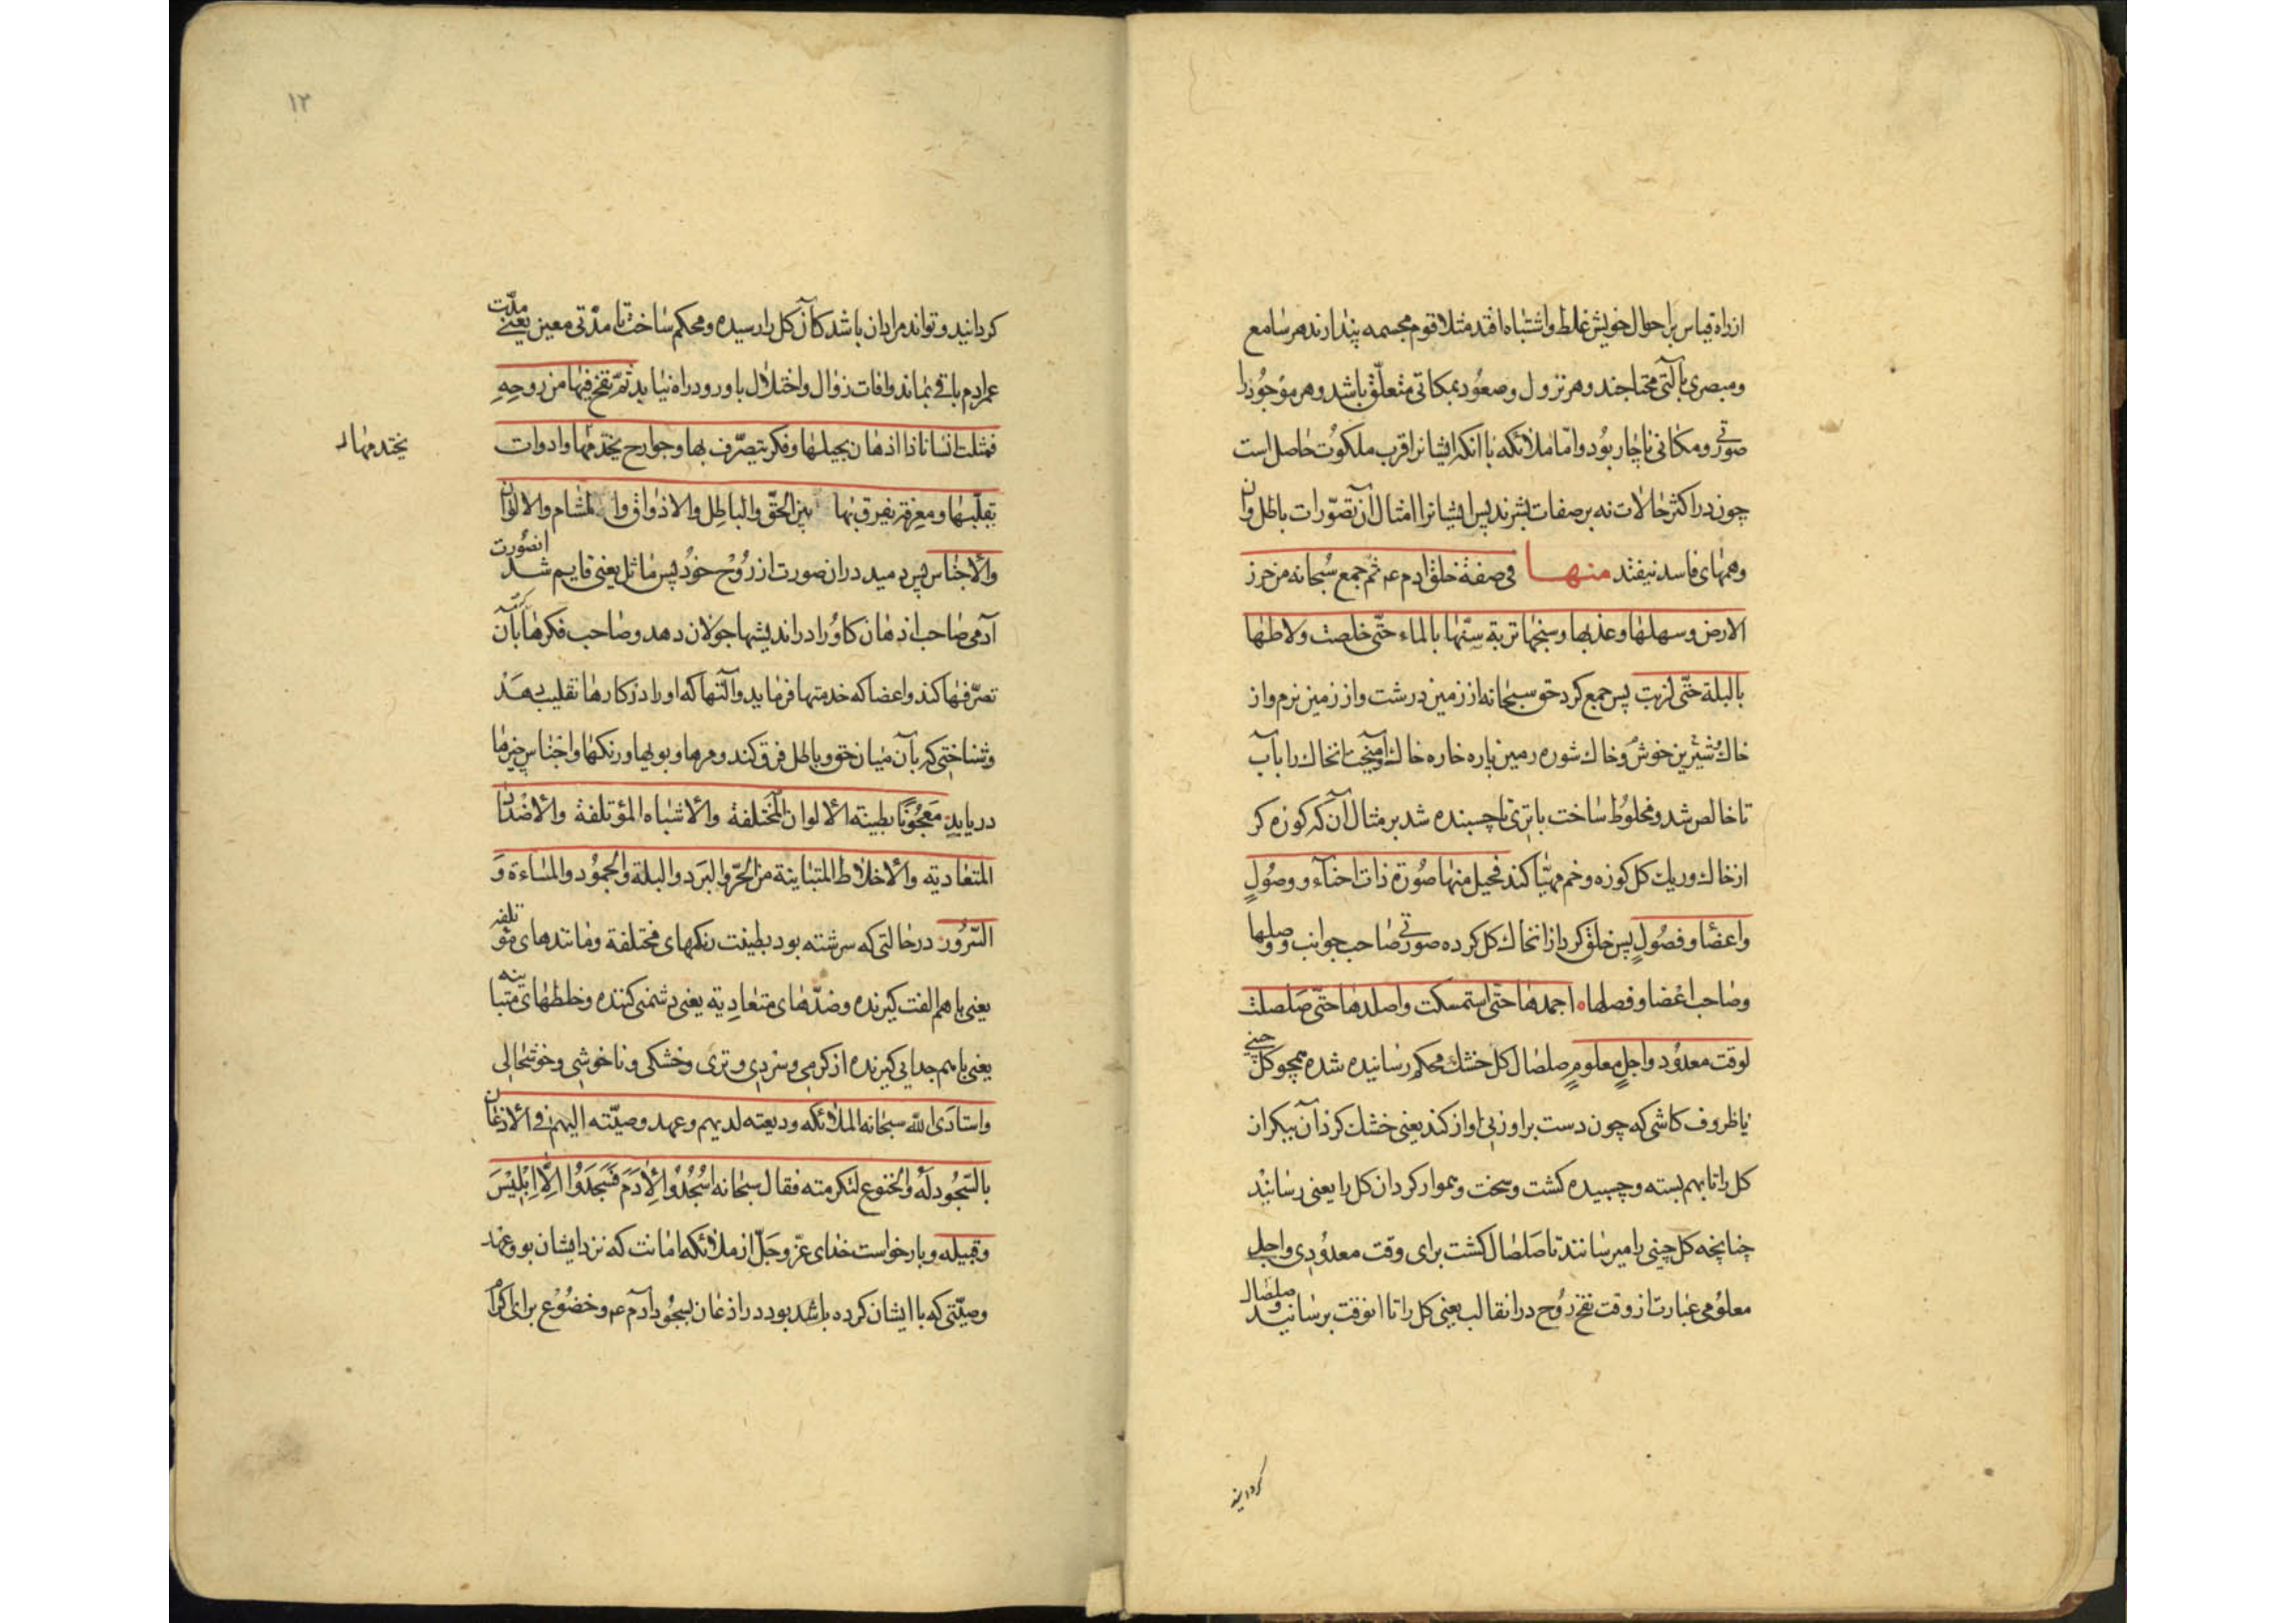 از راه قیاس بر احوال خویش غلط و اشتباه افتد مثلا قوم مجسمه پندارند هر سامع
و مبصری بآلتی محتاجند و هر نزول و صعود بمکانی متعلّق باشد و هر موجود را
صورتی و مکانی ناچار بود و امّا ملائکه با انکه ایشانرا قرب ملکوت حاصل است
چون در اکثر حالات نه بر صفات بشرند پس ایشانرا امثال آن تصوّرات باطل وان
وهمهای فاسد نیفتد منها فی صفة خلق ادم عم ثم جمع سُبحانه من حزن
الارض وسهلها وعذبها وسبخها تربة سنّها بالماء حتّی خلصت ولاطها
بالبلة حتّی لزبت پس جمع کرد حق سبحانه از زمین درشت و از زمین نرم و از
خاك شیرین خوش و خاك شوره زمین پاره خاره خاك آمیخت انخاك را بآب
تا خالص شد و مخلوط ساخت با تری تا چسبنده شد بر مثال آن که کوزه کر
از خاك وریك کل کوزه و خم مهیّا کند فجبل منها صُورة ذات احناء و وصُولٍ
واعضا وفصُولٍ پس خلق کرد از انخاك کل کرده صورتی صاحب جوانب و وصلها
وصاحب اعضا وفصلها اجمدها حتّی استمسکت واصلدها حتّی صَلصلت
لوقت معدُود واجلٍ معلومٍ صلصال کل خشك محکم رسانیده شده همچو کل چینی
یا ظروف کاشی که چون دست بر او زنی اواز کند یعنی خشك کرد آن پیکر از
کل را تا بهم بسته و چسپیده کشت و سخت و هموار کردان کل را یعنی رسانید
چنانچه کل چینی را میرسانند تا صَلصَال کشت برای وقت معدُودی واجل
معلوُمی عبارت از وقت نفخ رُوح در انقالب یعنی کل را تا انوقت برسانید و صلصال
کردانید
١٢
کردانید و تواند مراد ان باشد کآن کل را رسیده و محکم ساخت تا مدّتی معین یعنی مدّت
عمر ادم باقی بماند و افات زوال و اختلال باو رود راه نیابد ثمّ نفخ فیها من روحِهِ
فمثلت انسانا ذا اذهان یجیلها وفکر یتصرّف بها وجوارح یختدمها وادوات
یختدمها
یقلّبها ومعرفة یفرق بها بین الحقّ والباطِل والاذواق والمشام والالوان
والأجناس پس دمید دران صورت از رُوح خوُد پس ماثل یعنی قایم شد انصُورت
آدمی صاحب اذهان کاوُرا در اندیشها جولان دهد و صاحب فکرها که بآن
تصرّفها کند و اعضا که خدمتها فرماید و آلتها که او را در کارها تقلیب دهد
وشناختی که بآن میان حق و باطل فرق کند و مزها و بویها و رنکها و اجناس چیزها
دریابد مَعجُونًا بطینَه الألوان المختلفة والأشباه المؤتلفة والأضدَاد
المتعَادیه والأخلاط المتبَاینة من الحرّ والبَرد والبلة والجمُود والمسَاءة وَ
السُّرُور در حالتی که سرشته بود بطینت رنکهای مختلفة و مانندهای مؤتلفه
یعنی باهم الفت کیرنده و ضدّهای متعَادِیه یعنی دشمنی کننده و خلطهای متباینه
یعنی باهم جدایی کیرنده از کرمی و سردی و تری و خشکی و ناخوشی و خوشحالی
واستادَی اللّه سبحانه الملائکه ودیعته لدیهم وعهد وصیّته الیهم فی الأذعان
بالسّجُود لَهُ والخنوع لتکرمته فقال سبحانه اسْجُدُوا لِأدَمَ فَسَجَدُوا اِلَّا اِبْلِیْسَ
وقبیله و بازخواست خدای عزّ وجَلّ از ملائکه امانت که نزد ایشان بود و عهد
وصیّتی که با ایشان کرده باشد بود در اذعان بسجُود آدم عم و خضُوع برای اکرام